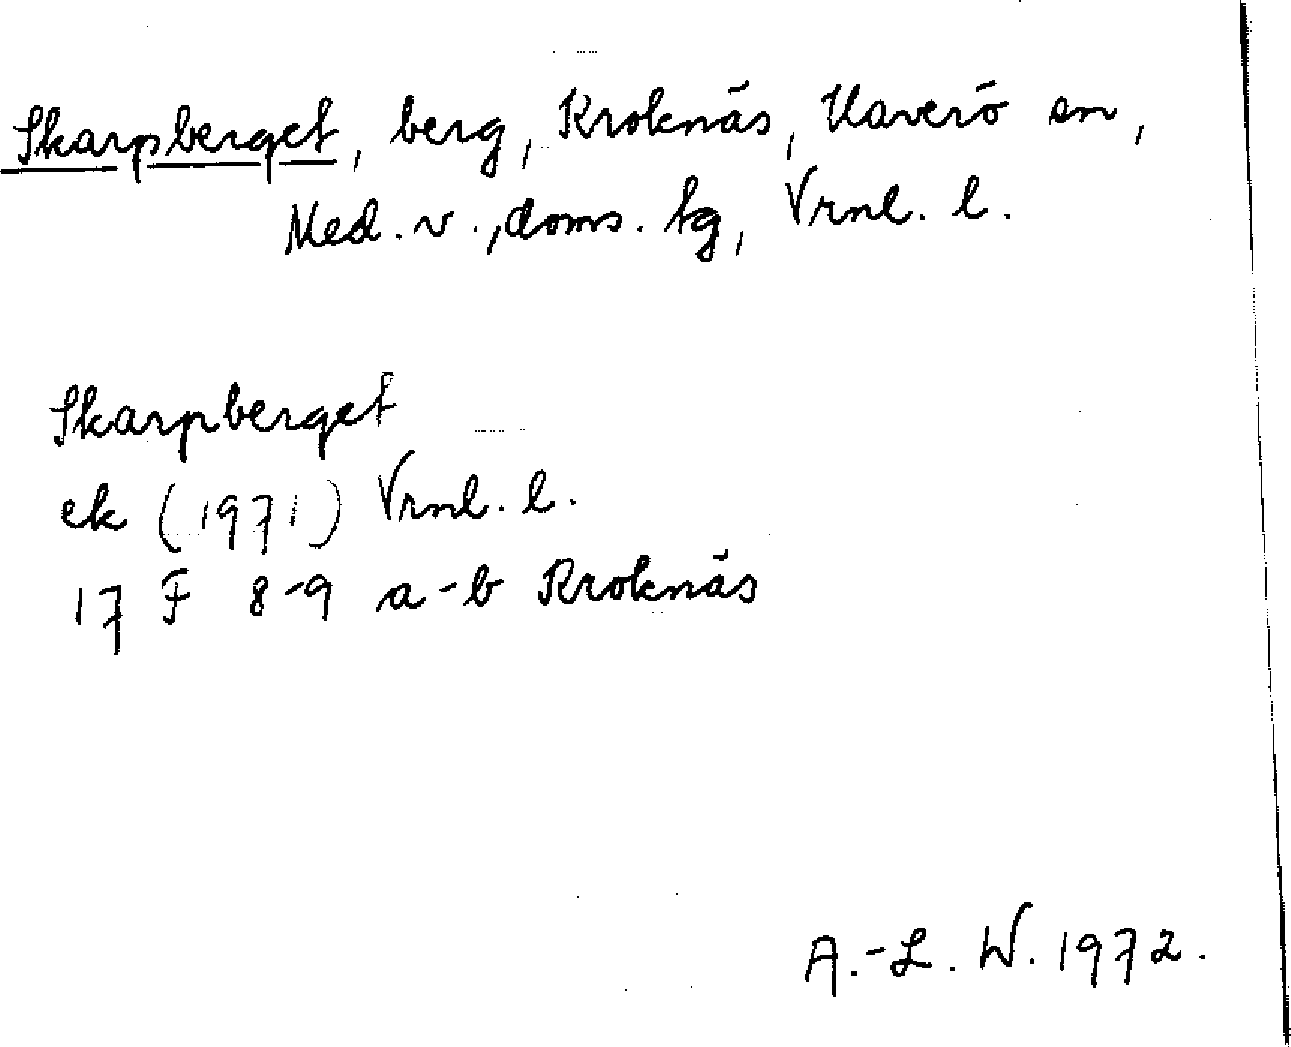 Skarpberget, berg, Kroknäs, Haverö sn,
Med. v., doms. tg, Vrnl. l.
Skarpberget
ek (1971) Vrnl. l.
17 F 8-9 a-b Kroknäs
A.-L. W. 1972.